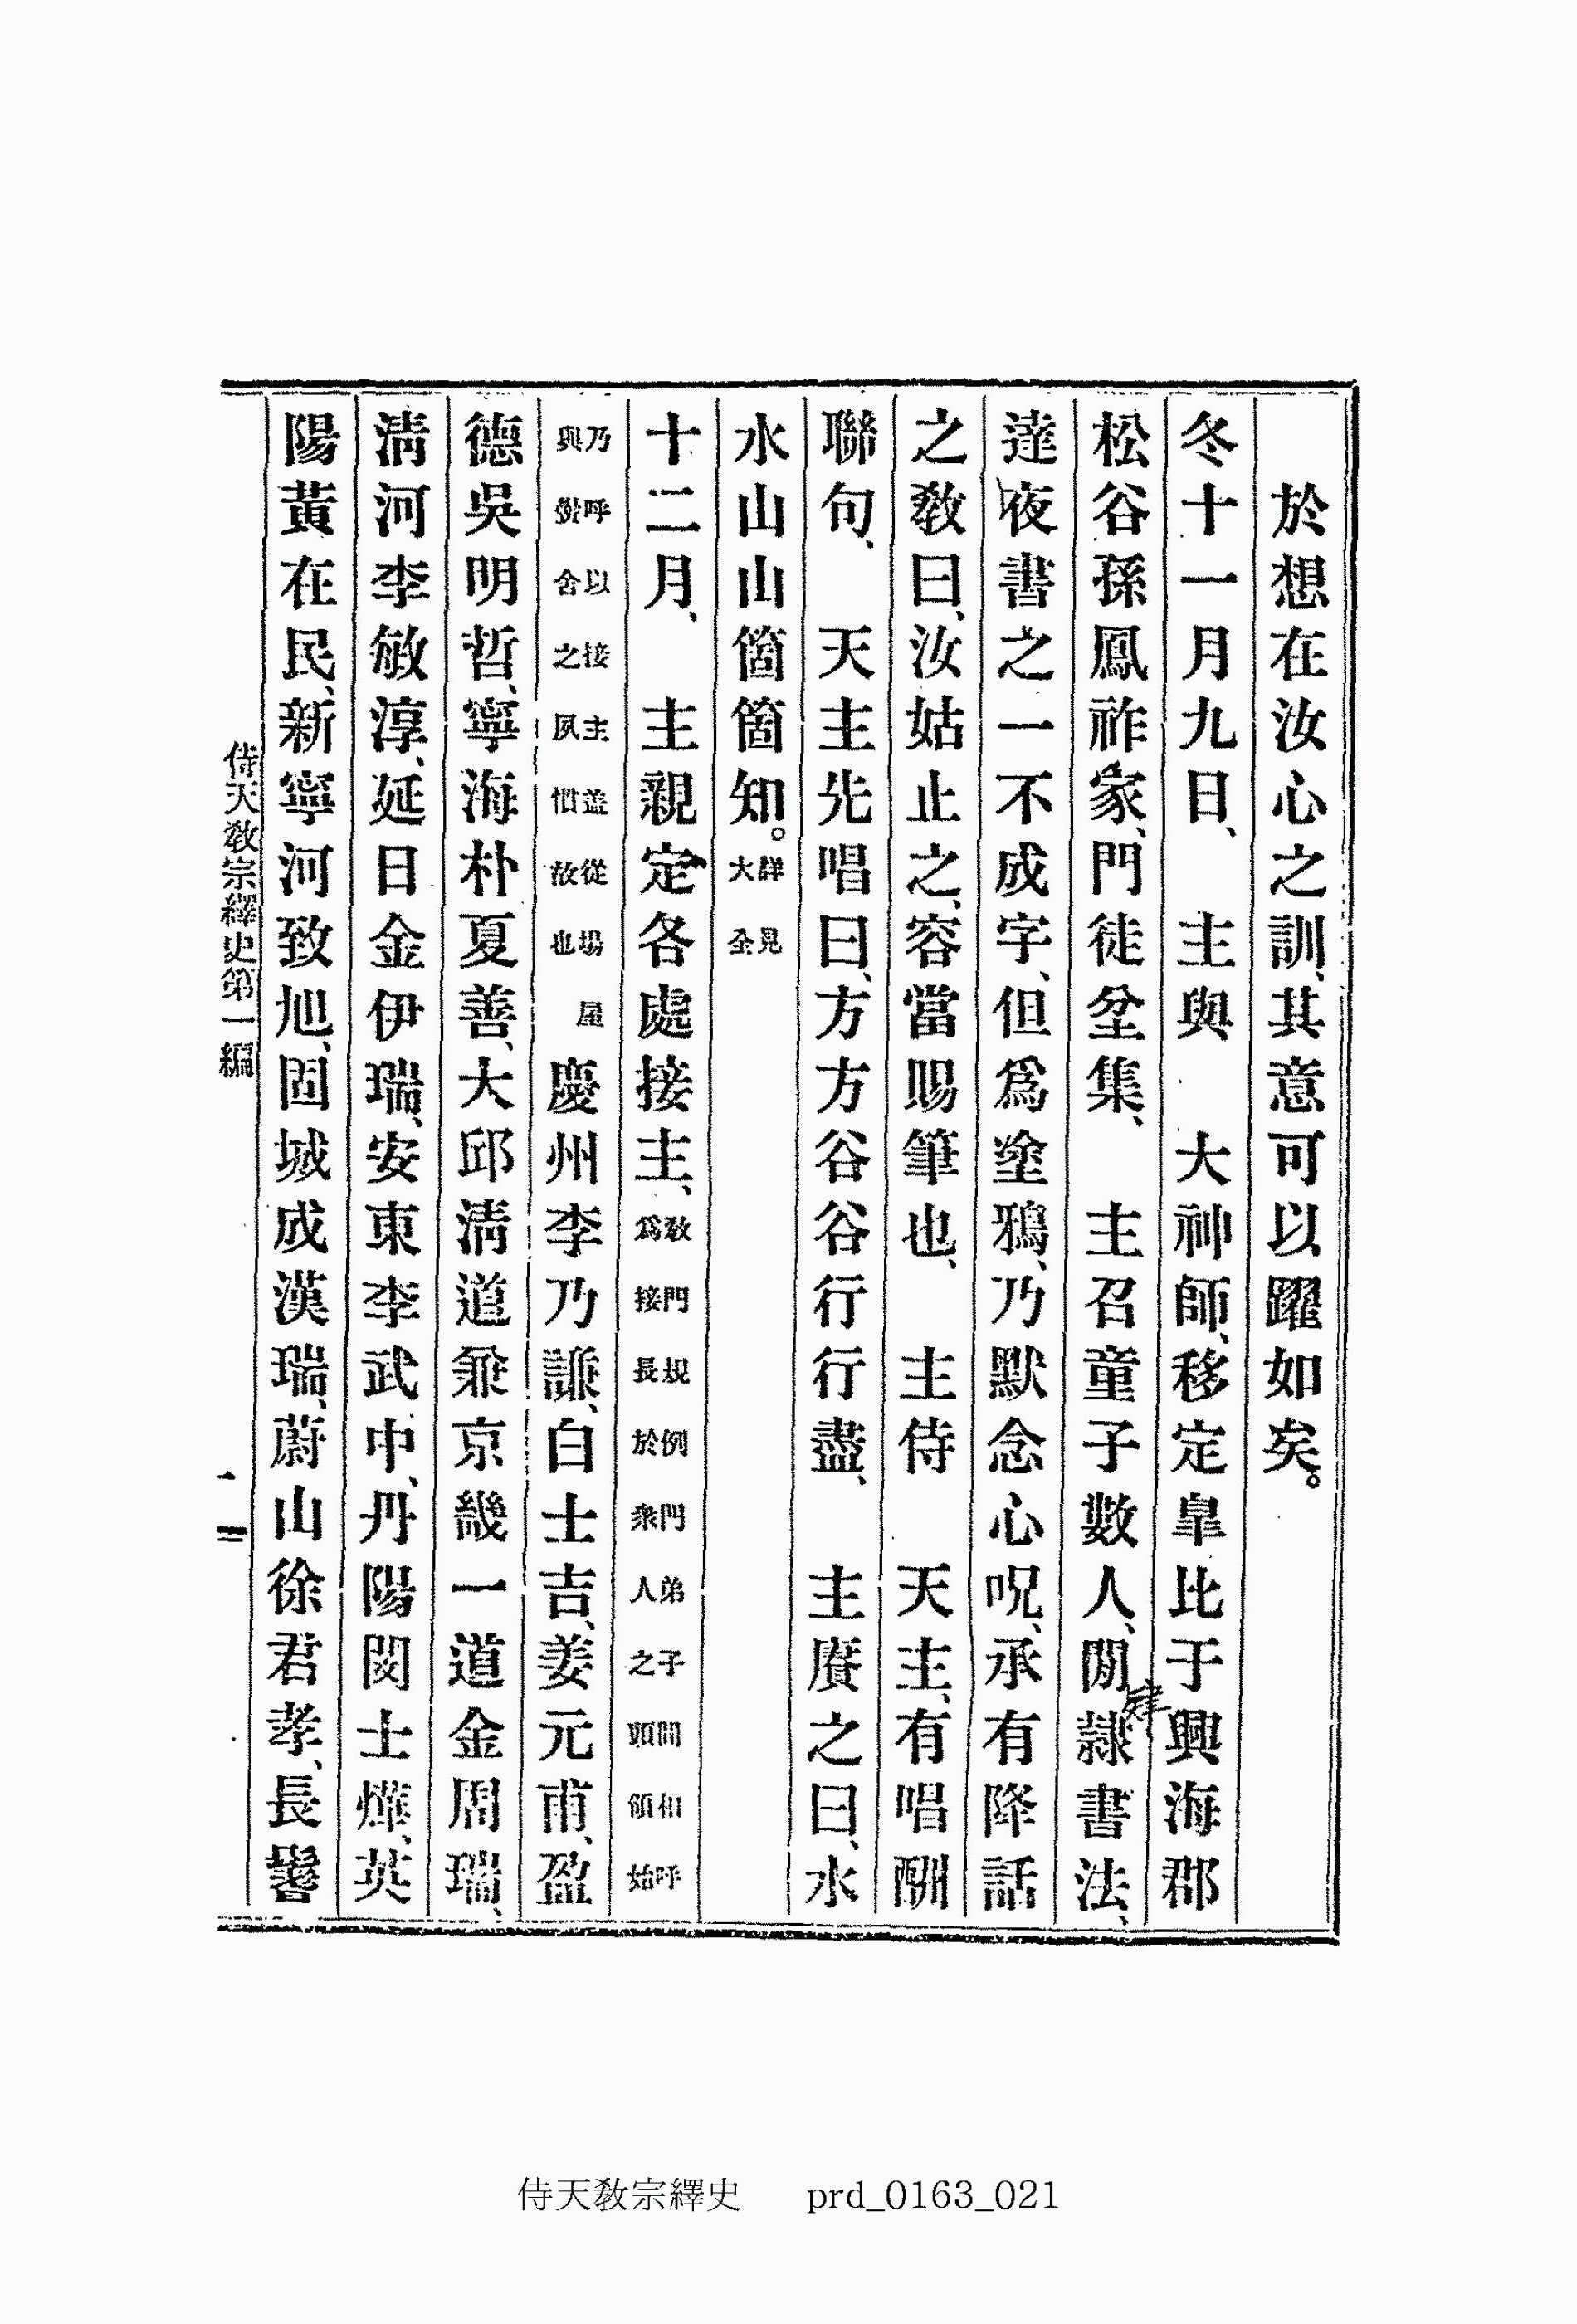 於想在汝心之訓、其意可以躍如矣。
冬十一月九日、　主與　大神師、移定皐比于興海郡
松谷孫鳳祚家、門徒坌集、　主召童子數人、閒隷書法、
肄
達夜書之一不成字、但爲塗鴉、乃默念心呪、承有降話
之敎曰、汝姑止之、容當賜筆也、　主侍　天主、有唱酬
聯句、　天主先唱曰、方方谷谷行行盡、　主賡之曰、水
水山山箇箇知。詳見大全
十二月、　主親定各處接主、敎門規例門弟子間相呼爲接長於衆人之頭領始
乃呼以接主蓋從場屋與黌舍之夙慣故也慶州李乃謙、白士吉、姜元甫、盈
德吳明哲、寧海朴夏善、大邱淸道兼京畿一道金周瑞、
淸河李敏淳、延日金伊瑞、安東李武中、丹陽閔士燁、英
陽黃在民、新寧河致旭、固城成漢瑞、蔚山徐君孝、長鬐
侍天敎宗繹史第一編
一二
侍天敎宗繹史 prd_0163_021